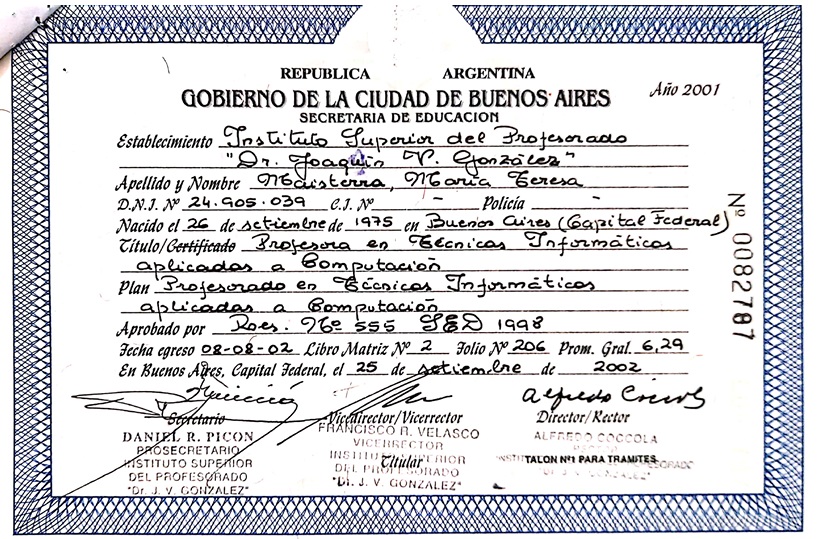 REPUBLICA ARGENTINA
GOBIERNO DE LA CIUDAD DE BUENOS AIRES
Año 2001
SECRETARIA DE EDUCACION
Establecimiento Instituto Superior del Profesorado
"Dr. Joaquín V. González"
Apellido y Nombre Maisterra, María Teresa
D.N.I. Nº 24.905.039 C.I. Nº - Policía -
Nacido el 26 de setiembre de 1975 en Buenos Aires (Capital Federal)
Título/Certificado Profesora en Técnicas Informáticas
aplicadas a Computación
Plan Profesorado en Técnicas Informáticas
aplicadas a Computación
Aprobado por Res. Nº 555 SED 1998
Fecha egreso 08-08-02 Libro Matriz Nº 2 Folio Nº 206 Prom. Gral. 6,29
En Buenos Aires, Capital Federal, el 25 de setiembre de 2002
Nº 0082787
Alfredo
Secretario Vicedirector/Vicerrector Director/Rector
DANIEL R. PICON
PROSECRETARIO
INSTITUTO SUPERIOR
DEL PROFESORADO
"Dr. J. V. GONZALEZ"
FRANCISCO R. VELASCO
VICERRECTOR
INSTITUTO SUPERIOR
Titular
DEL PROFESORADO
"DR. J. V. GONZALEZ"
ALFREDO COCCOLA
TALON Nº1 PARA TRAMITES